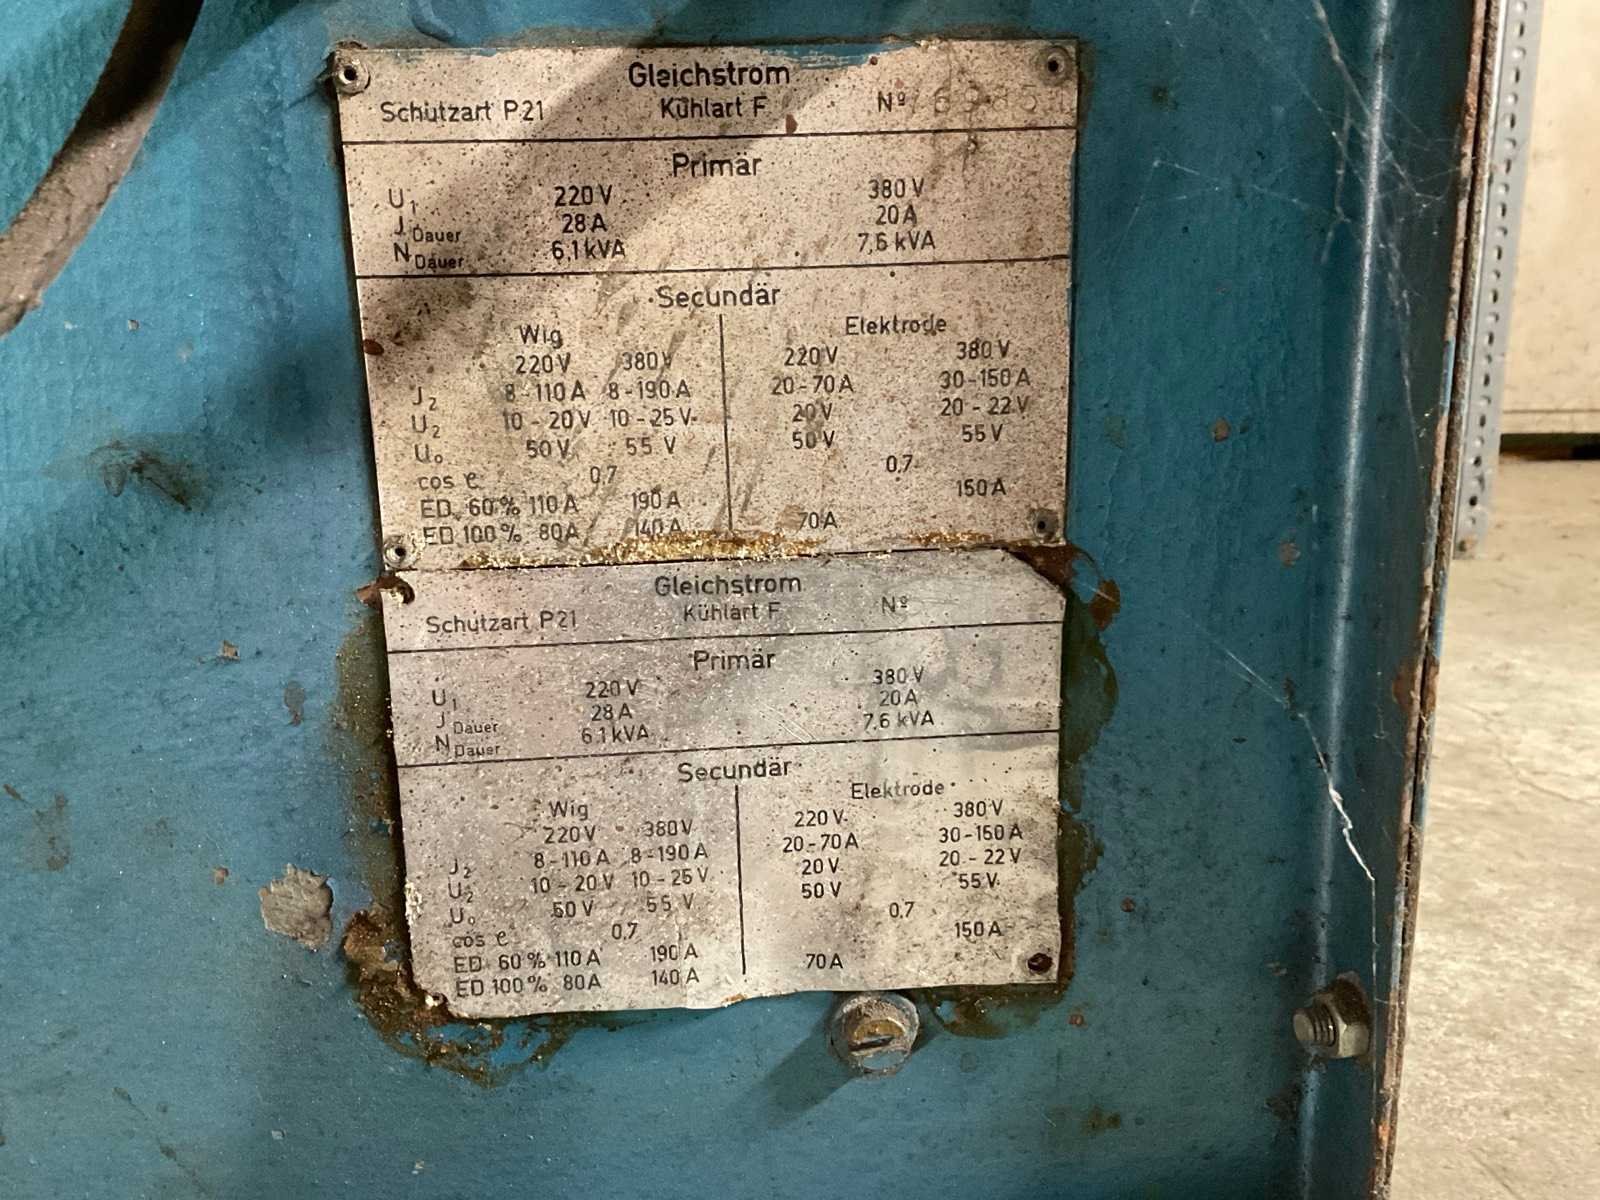 Gleichstrom
Schutzart P21 Kühlart F Nº
Primär
U1 220V 380V
JDauer 28A 20A
NDauer 6,1kVA 7,6 kVA
Secundär
Wig Elektrode
220V 380V 220V 380V
J2 8-110A 8-190A 20-70A 30-150A
U2 10-20V 10-25V 20V 20-22V
Uo 50V 55V 50V 55V
cos e 0,7 0,7
ED 60% 110A 190A 150A
ED 100% 80A 140A 70A
Gleichstrom
Schutzart P21 Kühlart F Nº
Primär
U1 220V 380V
JDauer 28A 20A
NDauer 6,1kVA 7,6 kVA
Secundär
Wig Elektrode
220V 380V 220V 380V
J2 8-110A 8-190A 20-70A 30-150A
U2 10-20V 10-25V 20V 20-22V
Uo 50V 55V 50V 55V
cos e 0,7 0,7
ED 60% 110A 190A 150A
ED 100% 80A 140A 70A